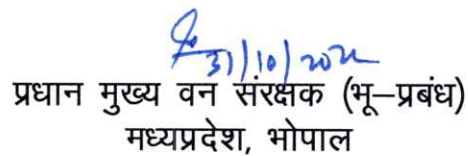 31/10/2022
प्रधान मुख्य वन संरक्षक (भू–प्रबंध)
मध्यप्रदेश, भोपाल